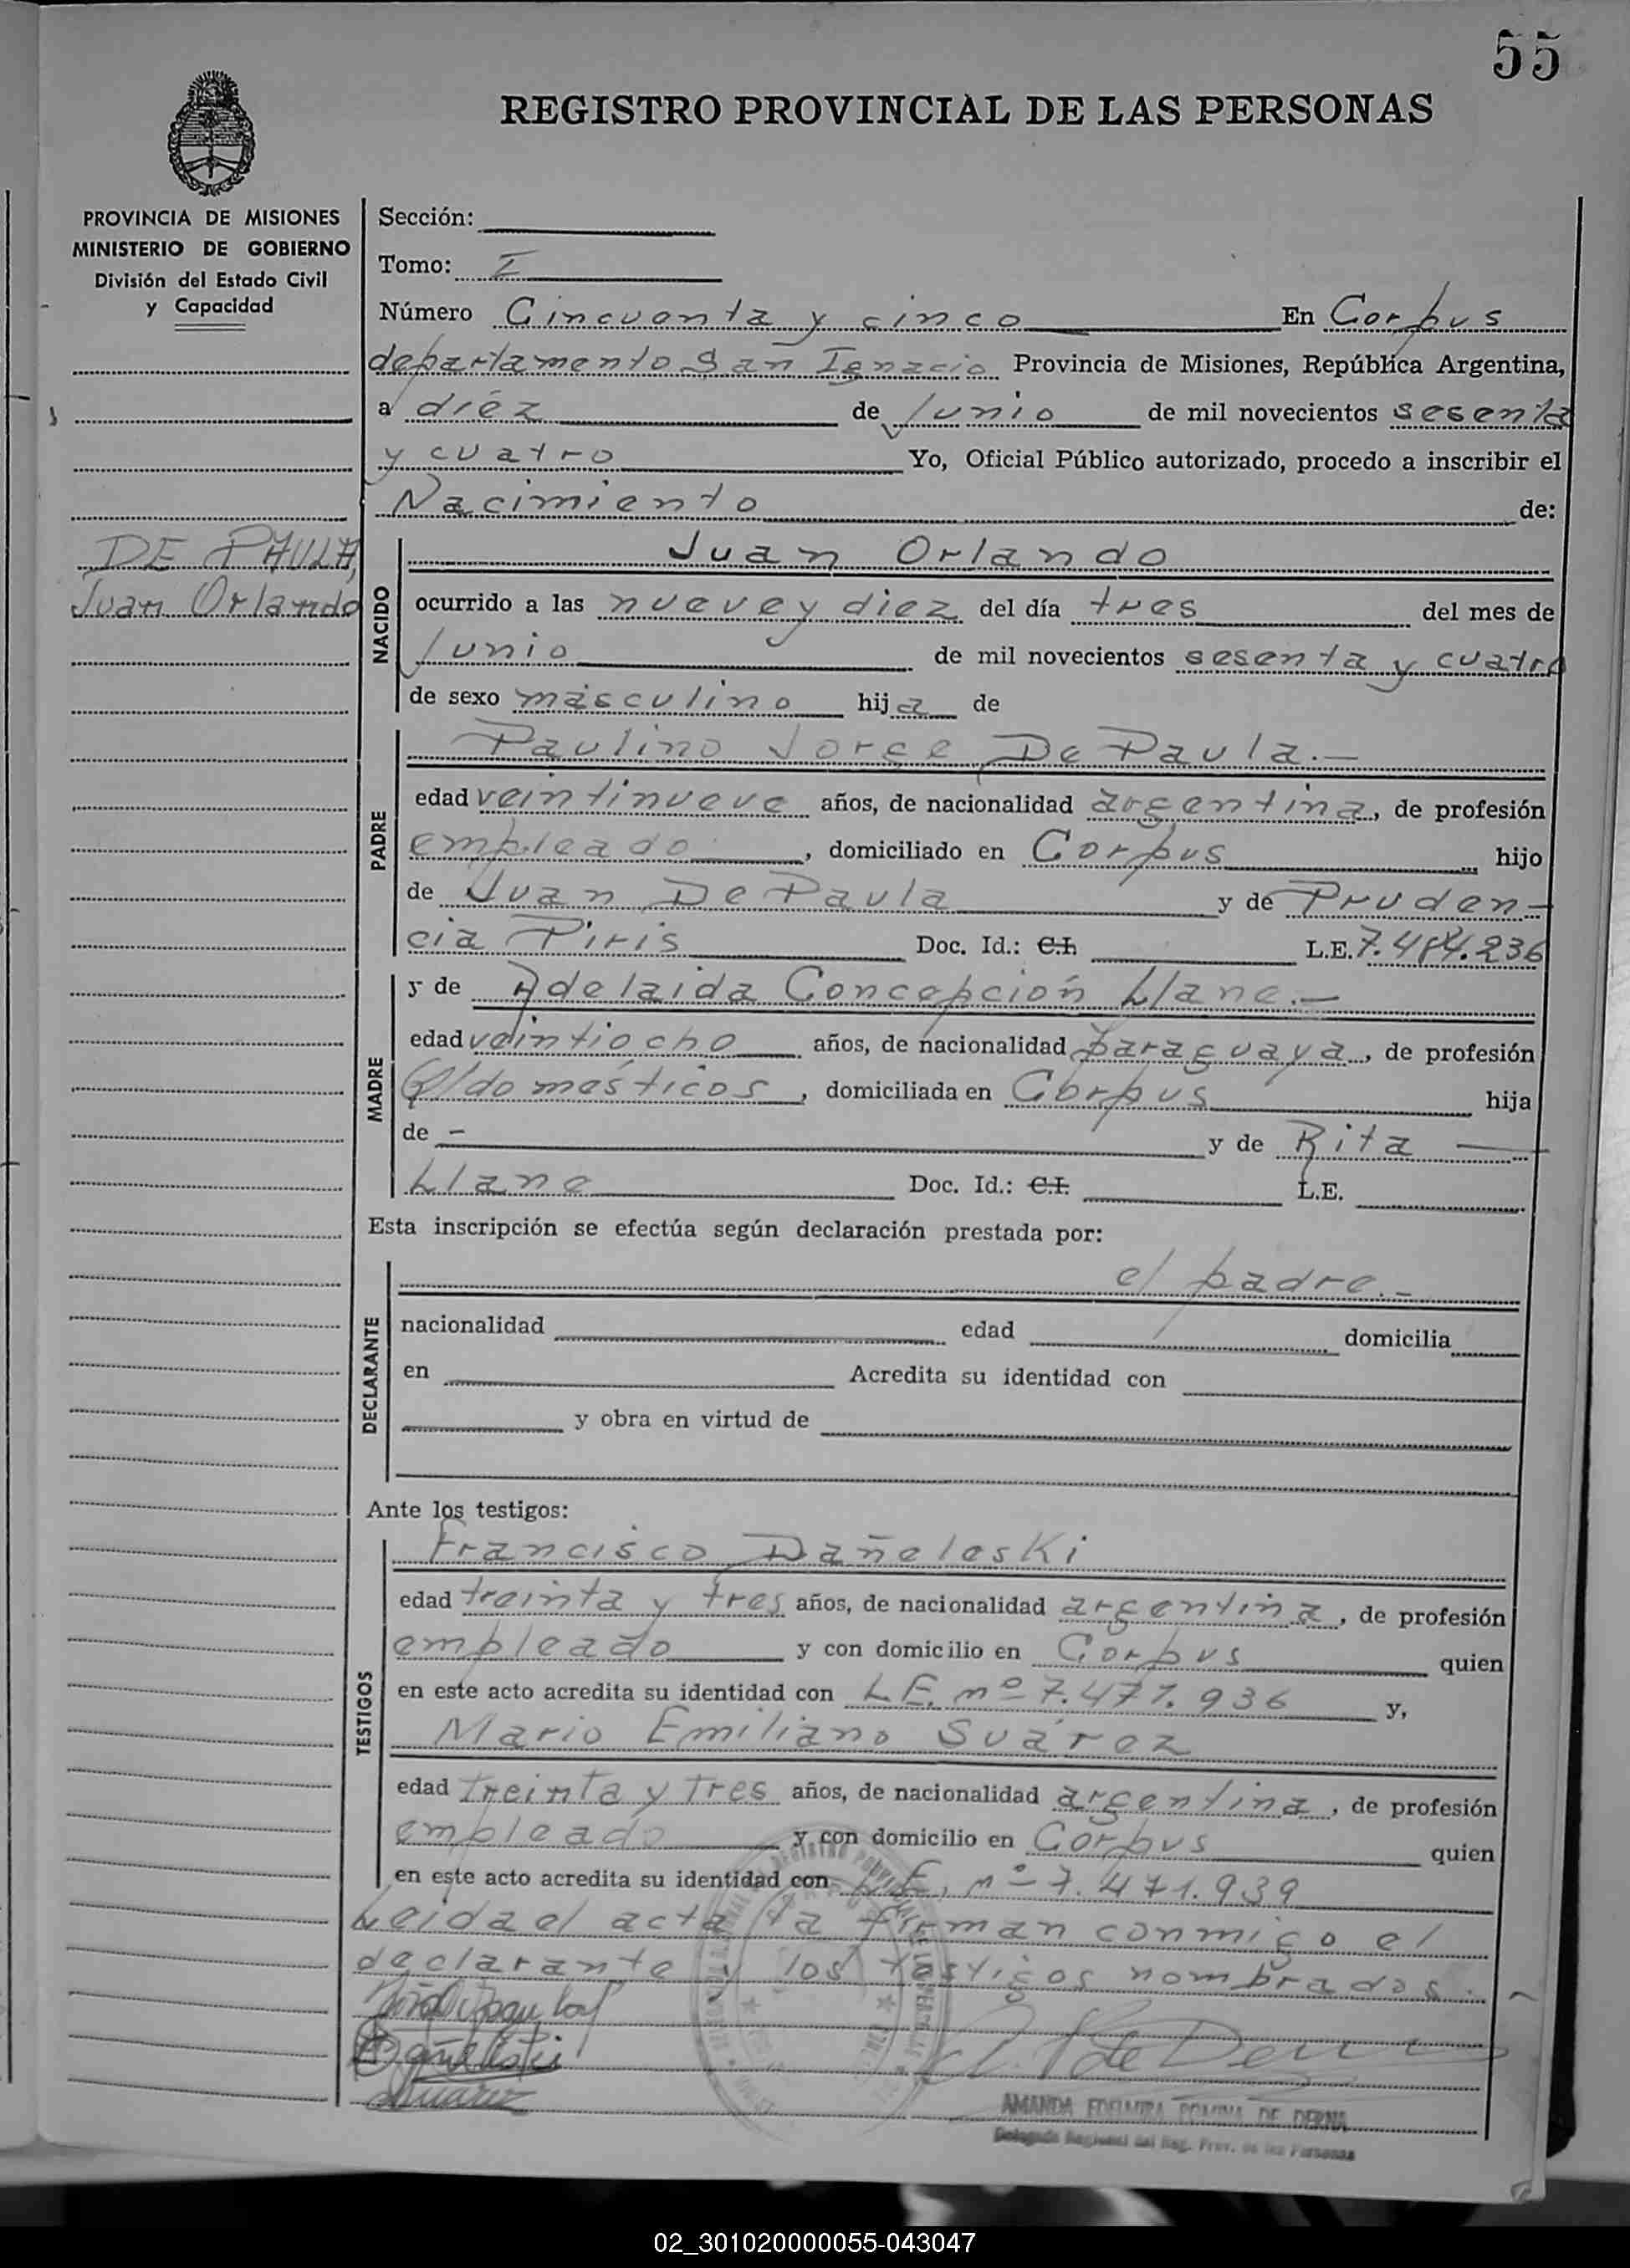 55
REGISTRO PROVINCIAL DE LAS PERSONAS
PROVINCIA DE MISIONES
MINISTERIO DE GOBIERNO
División del Estado Civil
y Capacidad
Sección:
Tomo: I
Número Cincuenta y cinco En Corpus
departamento San Ignacio Provincia de Misiones, República Argentina,
a diéz de Junio de mil novecientos sesenta
y cuatro Yo, Oficial Público autorizado, procedo a inscribir el
Nacimiento de:
DE PAULA,
Juan Orlando
NACIDO
Juan Orlando
ocurrido a las nueve y diez del día tres del mes de
Junio de mil novecientos sesenta y cuatro
de sexo masculino hija de
PADRE
Paulino Jorge De Paula.-
edad veintinueve años, de nacionalidad argentina, de profesión
empleado, domiciliado en Corpus hijo
de Juan De Paula y de Pruden-
cia Piris Doc. Id.: C.I. L.E. 7.484.236
MADRE
y de Adelaida Concepción Llane.-
edad veintiocho años, de nacionalidad paraguaya, de profesión
Q/domésticos, domiciliada en Corpus hija
de - y de Rita
Llane Doc. Id.: C.I. L.E.
Esta inscripción se efectúa según declaración prestada por:
DECLARANTE
el padre.-
nacionalidad edad domicilia
en Acredita su identidad con
y obra en virtud de
Ante los testigos:
TESTIGOS
Francisco Dañeleski
edad treinta y tres años, de nacionalidad argentina, de profesión
empleado y con domicilio en Corpus quien
en este acto acredita su identidad con L.E. nº 7.471.936 y,
Mario Emiliano Suárez
edad treinta y tres años, de nacionalidad argentina, de profesión
empleado y con domicilio en Corpus quien
en este acto acredita su identidad con L.E. nº 7.471.939
Leida el acta la firman conmigo el
declarante y los testigos nombrados.-
Suárez
AMANDA EDELMIRA ROMINA DE DERNA
Delegada Regional del Reg. Prov. de las Personas
02_301020000055-043047